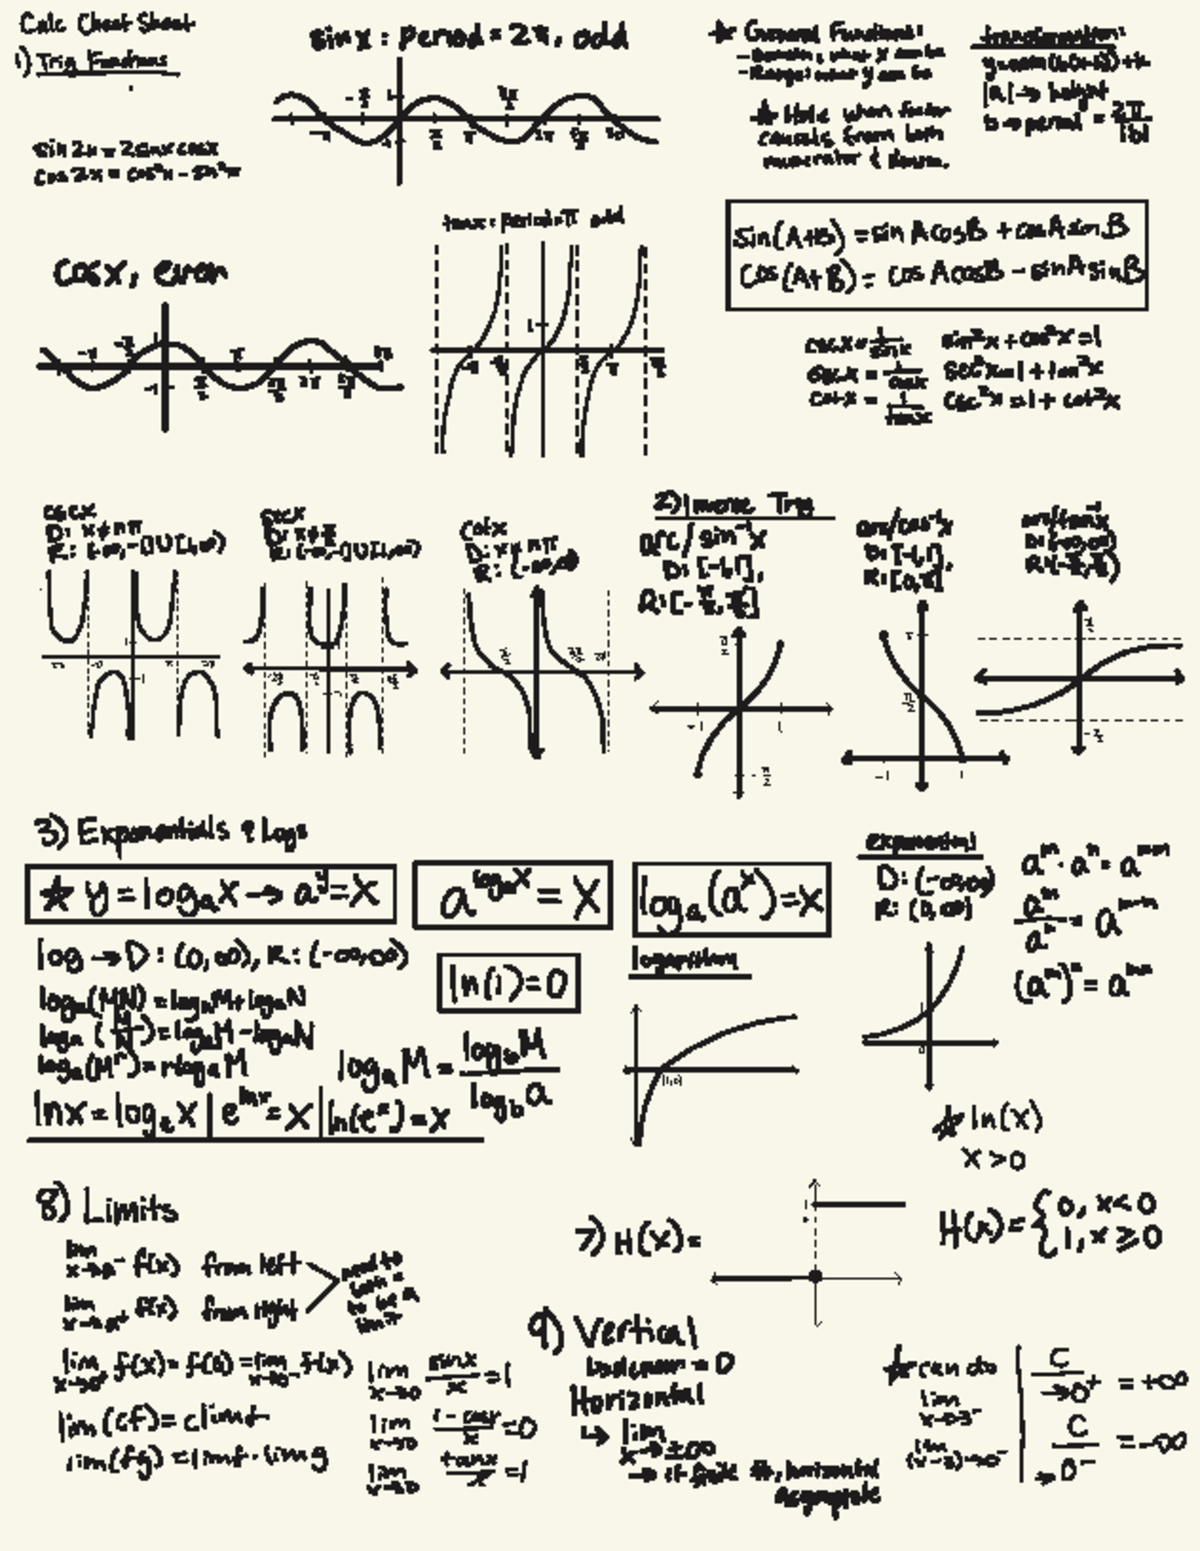 Calc Cheat Sheet
1) Trig Functions
sin 2x = 2sinx cosx
cos 2x = cos²x - sin²x
sin x : period = 2π, odd
☆ General Functions:
- Domain: what x can be
- Range: what y can be
☆ Hole when factor
cancels from both
numerator & denom.
transformation:
|a| → height
b → period = 2π/|b|
cosx, even
tanx: period=π odd
sin(A+B) = sinAcosB + cosAsinB
cos(A+B) = cosAcosB - sinAsinB
cscx = 1/sinx sin²x + cos²x = 1
secx = 1/cosx sec²x = 1 + tan²x
cotx = 1/tanx csc²x = 1 + cot²x
cscx
D: x ≠ nπ
R: (-∞,-1]∪[1,∞)
secx
R: (-∞,-1]∪[1,∞)
cotx
D: x ≠ nπ
R: (-∞,∞)
2) Inverse Trig
arc/sin⁻¹x
D: [-1,1],
R: [-π/2, π/2]
arc/cos⁻¹x
D: [-1,1],
R: [0,π]
arc/tan⁻¹x
D: (-∞,∞)
R: (-π/2, π/2)
3) Exponentials & Logs
☆ y = logₐx → aʸ = x
a^(logₐx) = x
logₐ(aˣ) = x
exponential
D: (-∞,∞)
R: (0,∞)
aᵐ · aⁿ = aᵐ⁺ⁿ
aᵐ/aⁿ = aᵐ⁻ⁿ
(aᵐ)ⁿ = aᵐⁿ
log → D: (0,∞), R: (-∞,∞)
ln(1) = 0
logarithm
(1,0)
logₐ(MN) = logₐM + logₐN
logₐ(M/N) = logₐM - logₐN
logₐ(Mʳ) = rlogₐM
logₐM = log_bM / log_ba
lnx = logₑx | e^(lnx) = x | ln(eˣ) = x
☆ ln(x)
x > 0
8) Limits
lim x→a⁻ f(x) from left
lim x→a⁺ f(x) from right
need to
both =
to be a
limit
lim x→a⁺ f(x) = f(a) = lim x→a⁻ f(x)
lim(cf) = climf
lim(fg) = limf · limg
lim x→0 sinx/x = 1
lim x→0 1-cosx/x = 0
lim x→0 tanx/x = 1
7) H(x) =
H(x) = { 0, x < 0
1, x ≥ 0
9) Vertical
Horizontal
↳ lim x→±∞
→ if finite #, horizontal
asymptote
☆ can do
lim x→3⁻
C/→0⁺ = +∞
C/→0⁻ = -∞